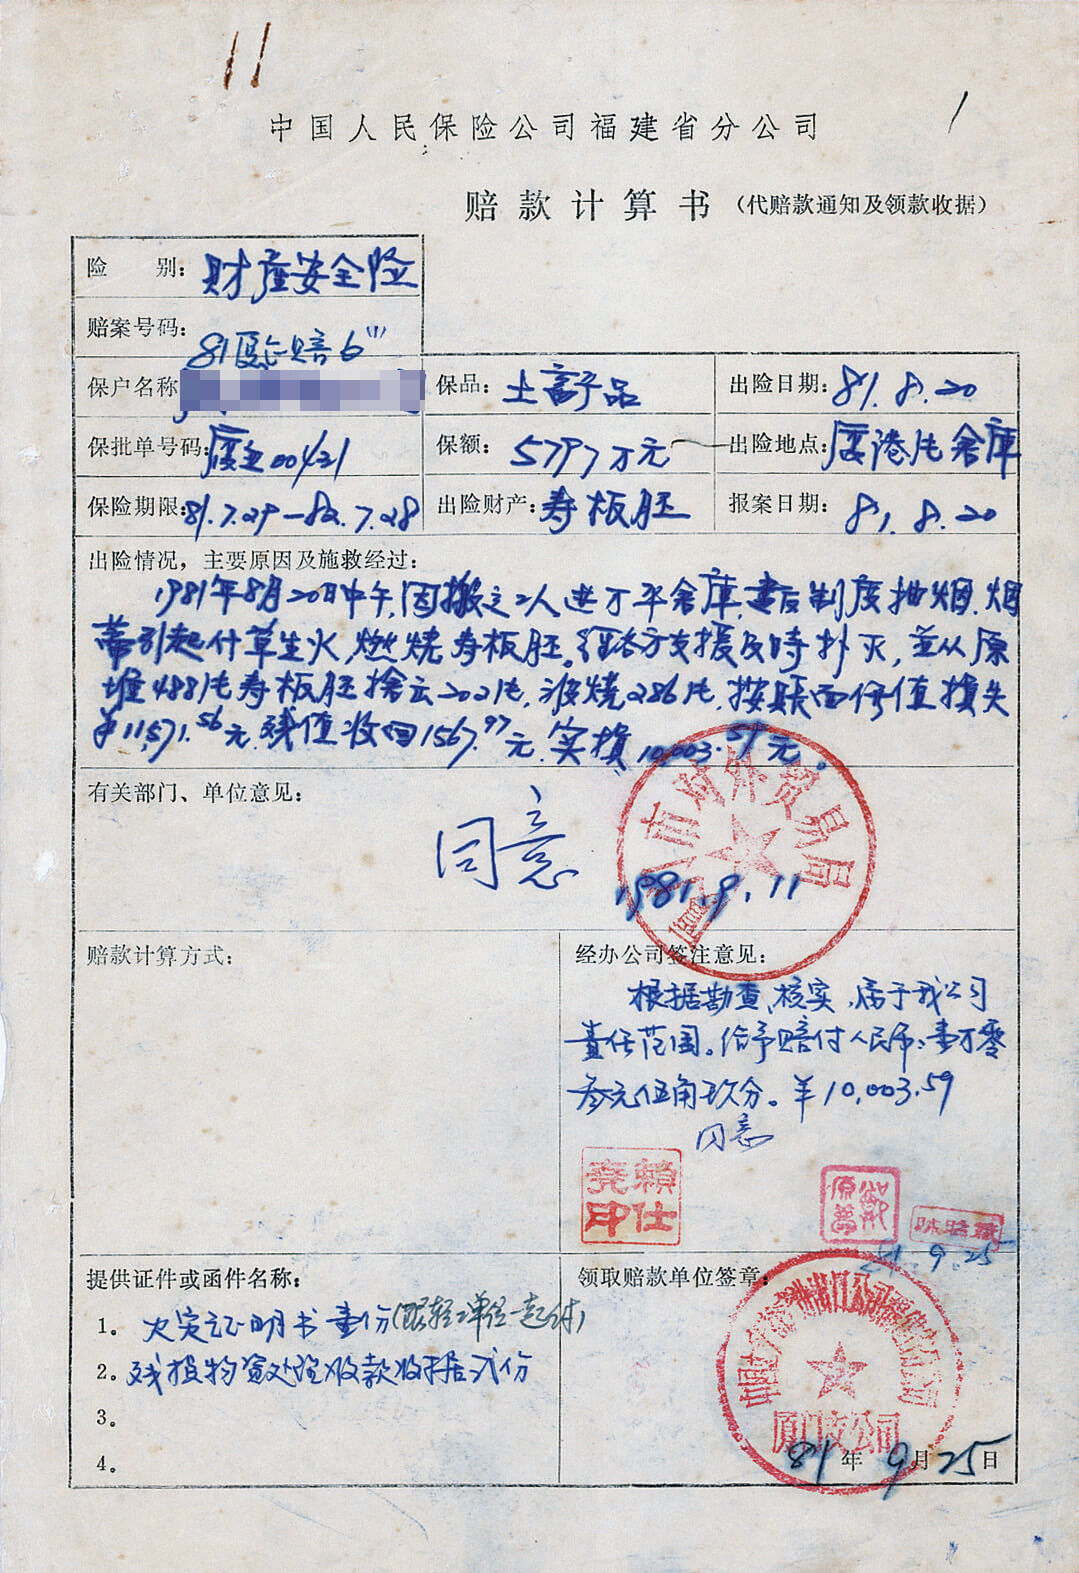 11
1
中国人民保险公司福建省分公司
赔款计算书（代赔款通知及领款收据）
险 别：财产安全险
赔案号码：81厦企赔6(1)
保户名称
保品：土畜产品
出险日期：81.8.20
保批单号码：00421
保额：5797万元
出险地点：厦港 仓库
保险期限：81.7.29—82.7.28
出险财产：寿板胚
报案日期：81.8.20
出险情况，主要原因及施救经过：
1981年8月20日中午，因搬运工人进了平仓库，违反制度抽烟，烟
蒂引起什草生火，燃烧寿板胚。经各方支援及时扑灭，並从原
堆488片寿板胚抢出202片，被烧286片，按账面价值损失
￥11,571.56元，残值收回1567.97元，实损10,003.59元。
有关部门、单位意见：
同意
1981.9.11
赔款计算方式：
经办公司签注意见：
根据勘查、核实，属于我公司
责任范围。给予赔付人民币：壹万零
叁元伍角玖分。￥10,003.59
同意
赖仕尧印
81.9.25
提供证件或函件名称：
1。火灾证明书壹份（跟轻 单位一起付）
2。残损物资处理收款收据贰份
3。
4。
领取赔款单位签章：
厦门支公司
81年9月25日